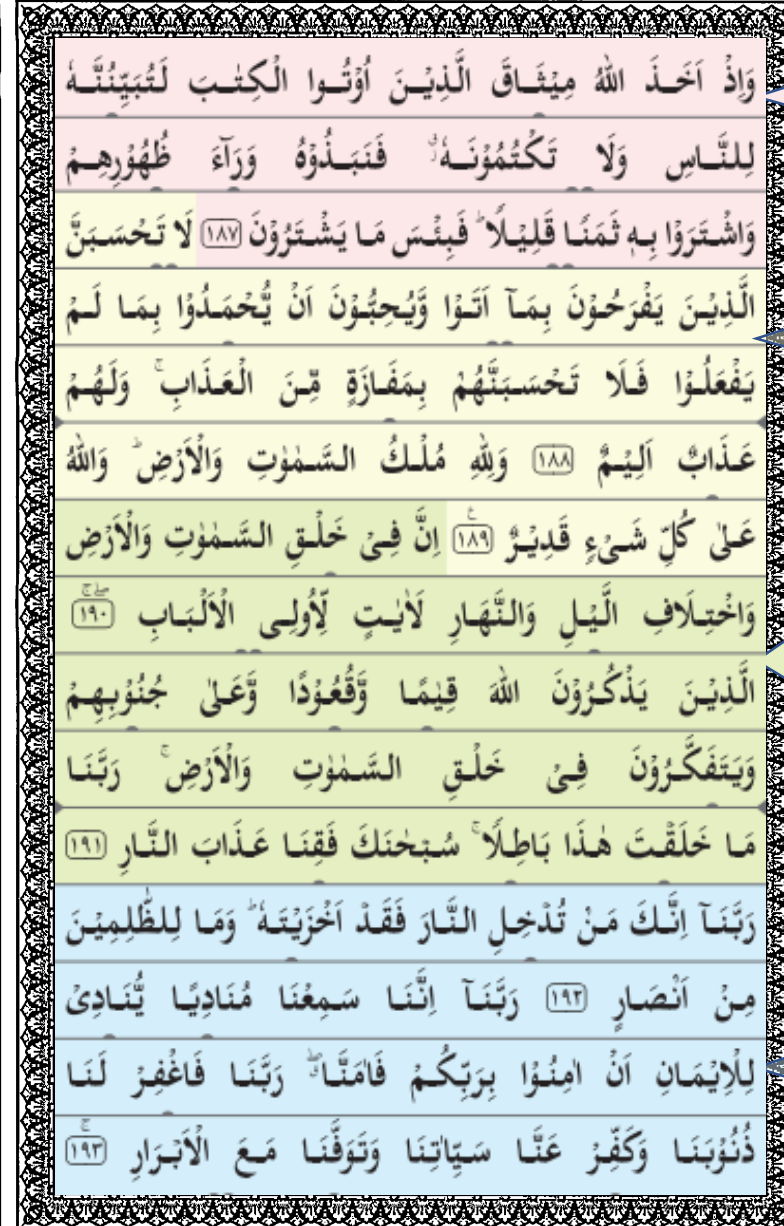 وَاِذۡ اَخَذَ اللّٰهُ مِيۡثَاقَ الَّذِيۡنَ اُوۡتُوا الۡكِتٰبَ لَتُبَيِّنُنَّهٗ
لِلنَّاسِ وَلَا تَكۡتُمُوۡنَهٗ ۙ فَنَبَذُوۡهُ وَرَآءَ ظُهُوۡرِهِمۡ
وَاشۡتَرَوۡا بِهٖ ثَمَنًا قَلِيۡلًا ؕ فَبِئۡسَ مَا يَشۡتَرُوۡنَ ﴿۱۸۷﴾ لَا تَحۡسَبَنَّ
الَّذِيۡنَ يَفۡرَحُوۡنَ بِمَاۤ اَتَوۡا وَّيُحِبُّوۡنَ اَنۡ يُّحۡمَدُوۡا بِمَا لَمۡ
يَفۡعَلُوۡا فَلَا تَحۡسَبَنَّهُمۡ بِمَفَازَةٍ مِّنَ الۡعَذَابِ ۚ وَلَهُمۡ
عَذَابٌ اَلِيۡمٌ ﴿۱۸۸﴾ وَلِلّٰهِ مُلۡكُ السَّمٰوٰتِ وَالۡاَرۡضِ ؕ وَاللّٰهُ
عَلٰى كُلِّ شَىۡءٍ قَدِيۡرٌ ﴿۱۸۹﴾ اِنَّ فِىۡ خَلۡقِ السَّمٰوٰتِ وَالۡاَرۡضِ
وَاخۡتِلَافِ الَّيۡلِ وَالنَّهَارِ لَاٰيٰتٍ لِّاُولِى الۡاَلۡبَابِ ﴿۱۹۰﴾
الَّذِيۡنَ يَذۡكُرُوۡنَ اللّٰهَ قِيٰمًا وَّقُعُوۡدًا وَّعَلٰى جُنُوۡبِهِمۡ
وَيَتَفَكَّرُوۡنَ فِىۡ خَلۡقِ السَّمٰوٰتِ وَالۡاَرۡضِ ۚ رَبَّنَا
مَا خَلَقۡتَ هٰذَا بَاطِلًا ۚ سُبۡحٰنَكَ فَقِنَا عَذَابَ النَّارِ ﴿۱۹۱﴾
رَبَّنَاۤ اِنَّكَ مَنۡ تُدۡخِلِ النَّارَ فَقَدۡ اَخۡزَيۡتَهٗ ؕ وَمَا لِلظّٰلِمِيۡنَ
مِنۡ اَنۡصَارٍ ﴿۱۹۲﴾ رَبَّنَاۤ اِنَّنَا سَمِعۡنَا مُنَادِيًا يُّنَادِىۡ
لِلۡاِيۡمَانِ اَنۡ اٰمِنُوۡا بِرَبِّكُمۡ فَاٰمَنَّا ۖ رَبَّنَا فَاغۡفِرۡ لَنَا
ذُنُوۡبَنَا وَكَفِّرۡ عَنَّا سَيِّاٰتِنَا وَتَوَفَّنَا مَعَ الۡاَبۡرَارِ ﴿۱۹۳﴾